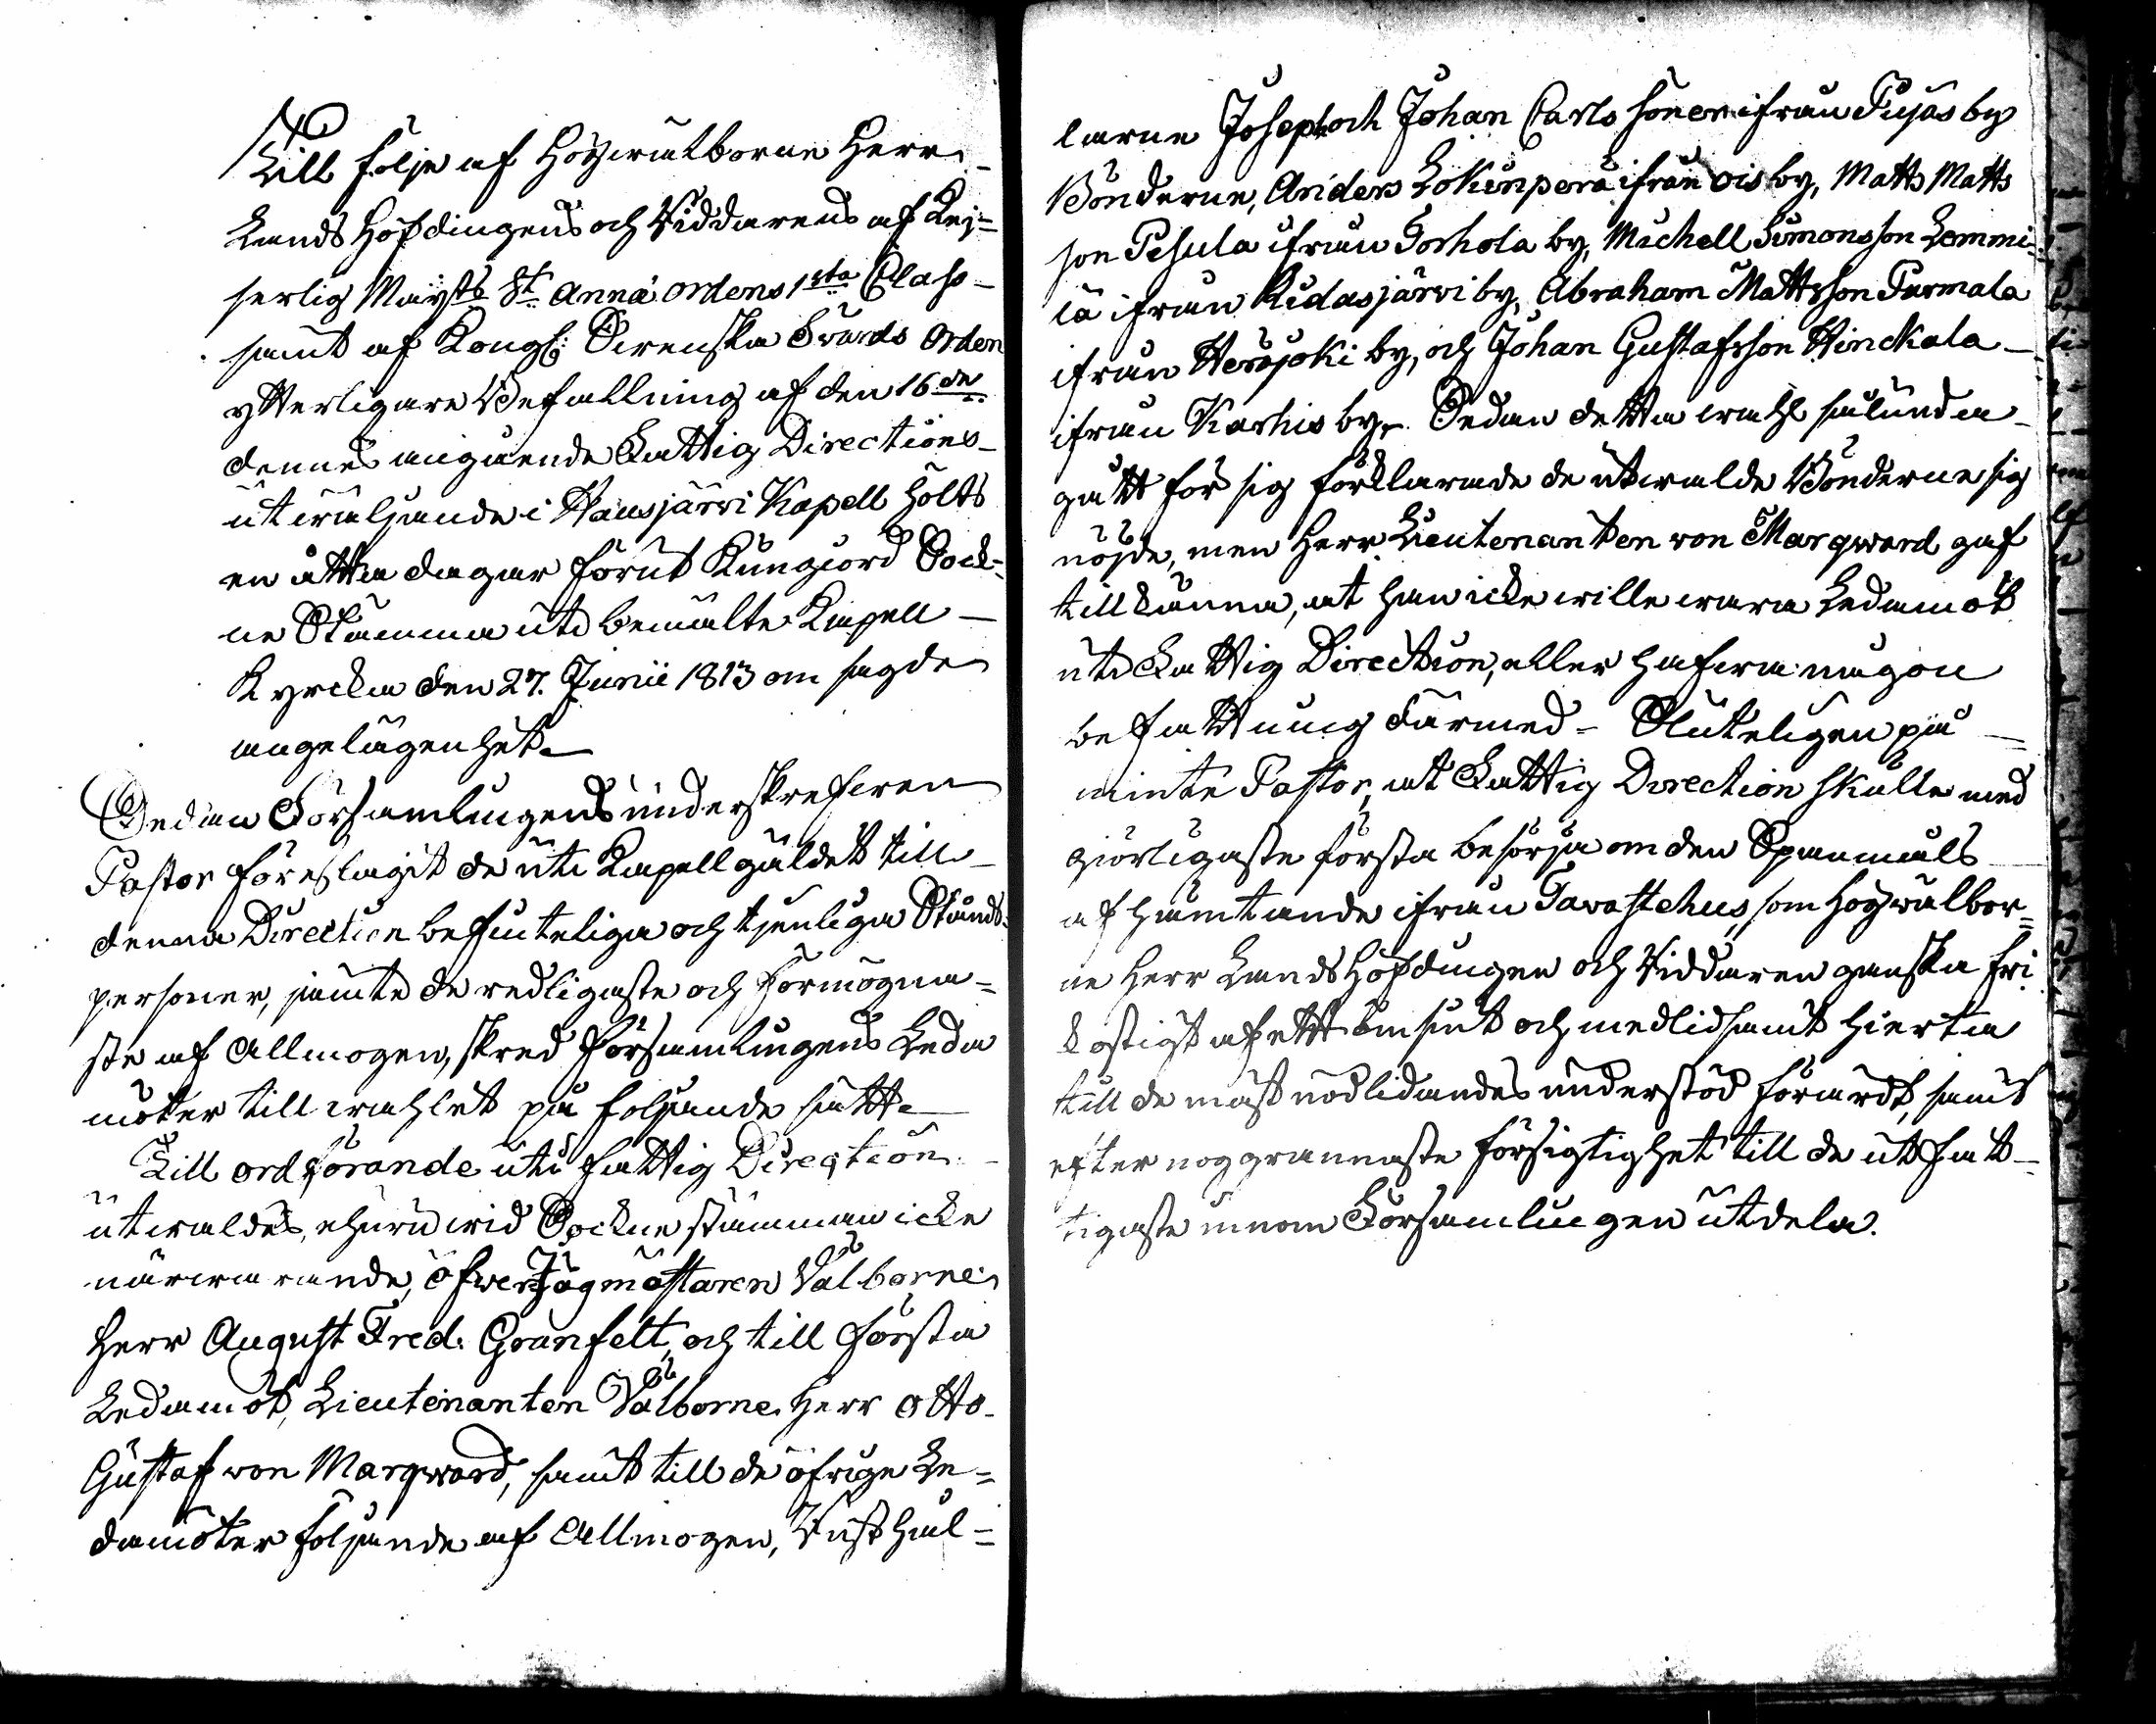 Till följe af Högwälborne Herr
Lands Höfdingens och Riddarens af Kej=
serlig Mayts St Annæ Ordens 1sta Class
samt af Kongl: Swenska Swärds Orden
ytterligare Befallning af den 16de
dennes angående Fattig Directions
utwäljande i Hausjärvi Kapell Holts
en åtta dagar förut Kungiord Sock=
ne Stämma uti bemälte Kapell
Kyrcka den 27. Junii 1813 om sagde
angelägenhet.
Sedan Församlingens underskrefwen
Pastor föreslagit de uti Kapellgäldet till
denna Direction befinteliga och tjenliga Stånds
personer, jämte de redligaste och förmögna=
ste af Allmogen, skred Församlingens Leda
möter till wahlet på foljande sätt.
Till ordförande uti Fattig Direction
utwaldes, ehuru wid Sockne stämman icke
närwarande, öfwerJägmästaren Välborne
Herr August Fred. Granfelt, och till Första
Ledamot, Lieutenanten Välborne Herr Otto
Gustaf von Marqward, samt till de öfrige Le=
damöter foljande af Allmogen, Rusthål=
larne Joseph och Johan Carls söner ifrån Pujås by
Bönderne, Anders Lokinperä ifrån Ois by, Matts Matts
son Pesula ifrån Torhola by, Michell Simonsson Lemmi=
lä ifrån Ridasjärvi by, Abraham Mattsson Parmala
ifrån Herajoki by, och Johan Gustafsson Hinckala
ifrån Karhis by. Sedan detta wahl sålunda
gått för sig förklarade de utwalde Bönderne sig
nöjde, men Herr Lieutenanten von Marqward gaf
tillkänna, at han icke wille wara Ledamot
uti Fattig Direction, eller hafwa någon
befattning därmed = Sluteligen på
minte Pastor, at Fattig Direction skulle med
giörligaste första besörja om den Spanmåls
afhämtande ifrån Tavastehus, som Högwälbor=
ne Herr Lands Höfdingen och Riddaren ganska fri
kostigt af ett ömsint och medlidsamt hierta
till de mäst nödlidandes understöd förärdt, samt
efter noggrannaste försigtighet till de utfat=
tigaste innom Församlingen utdela.